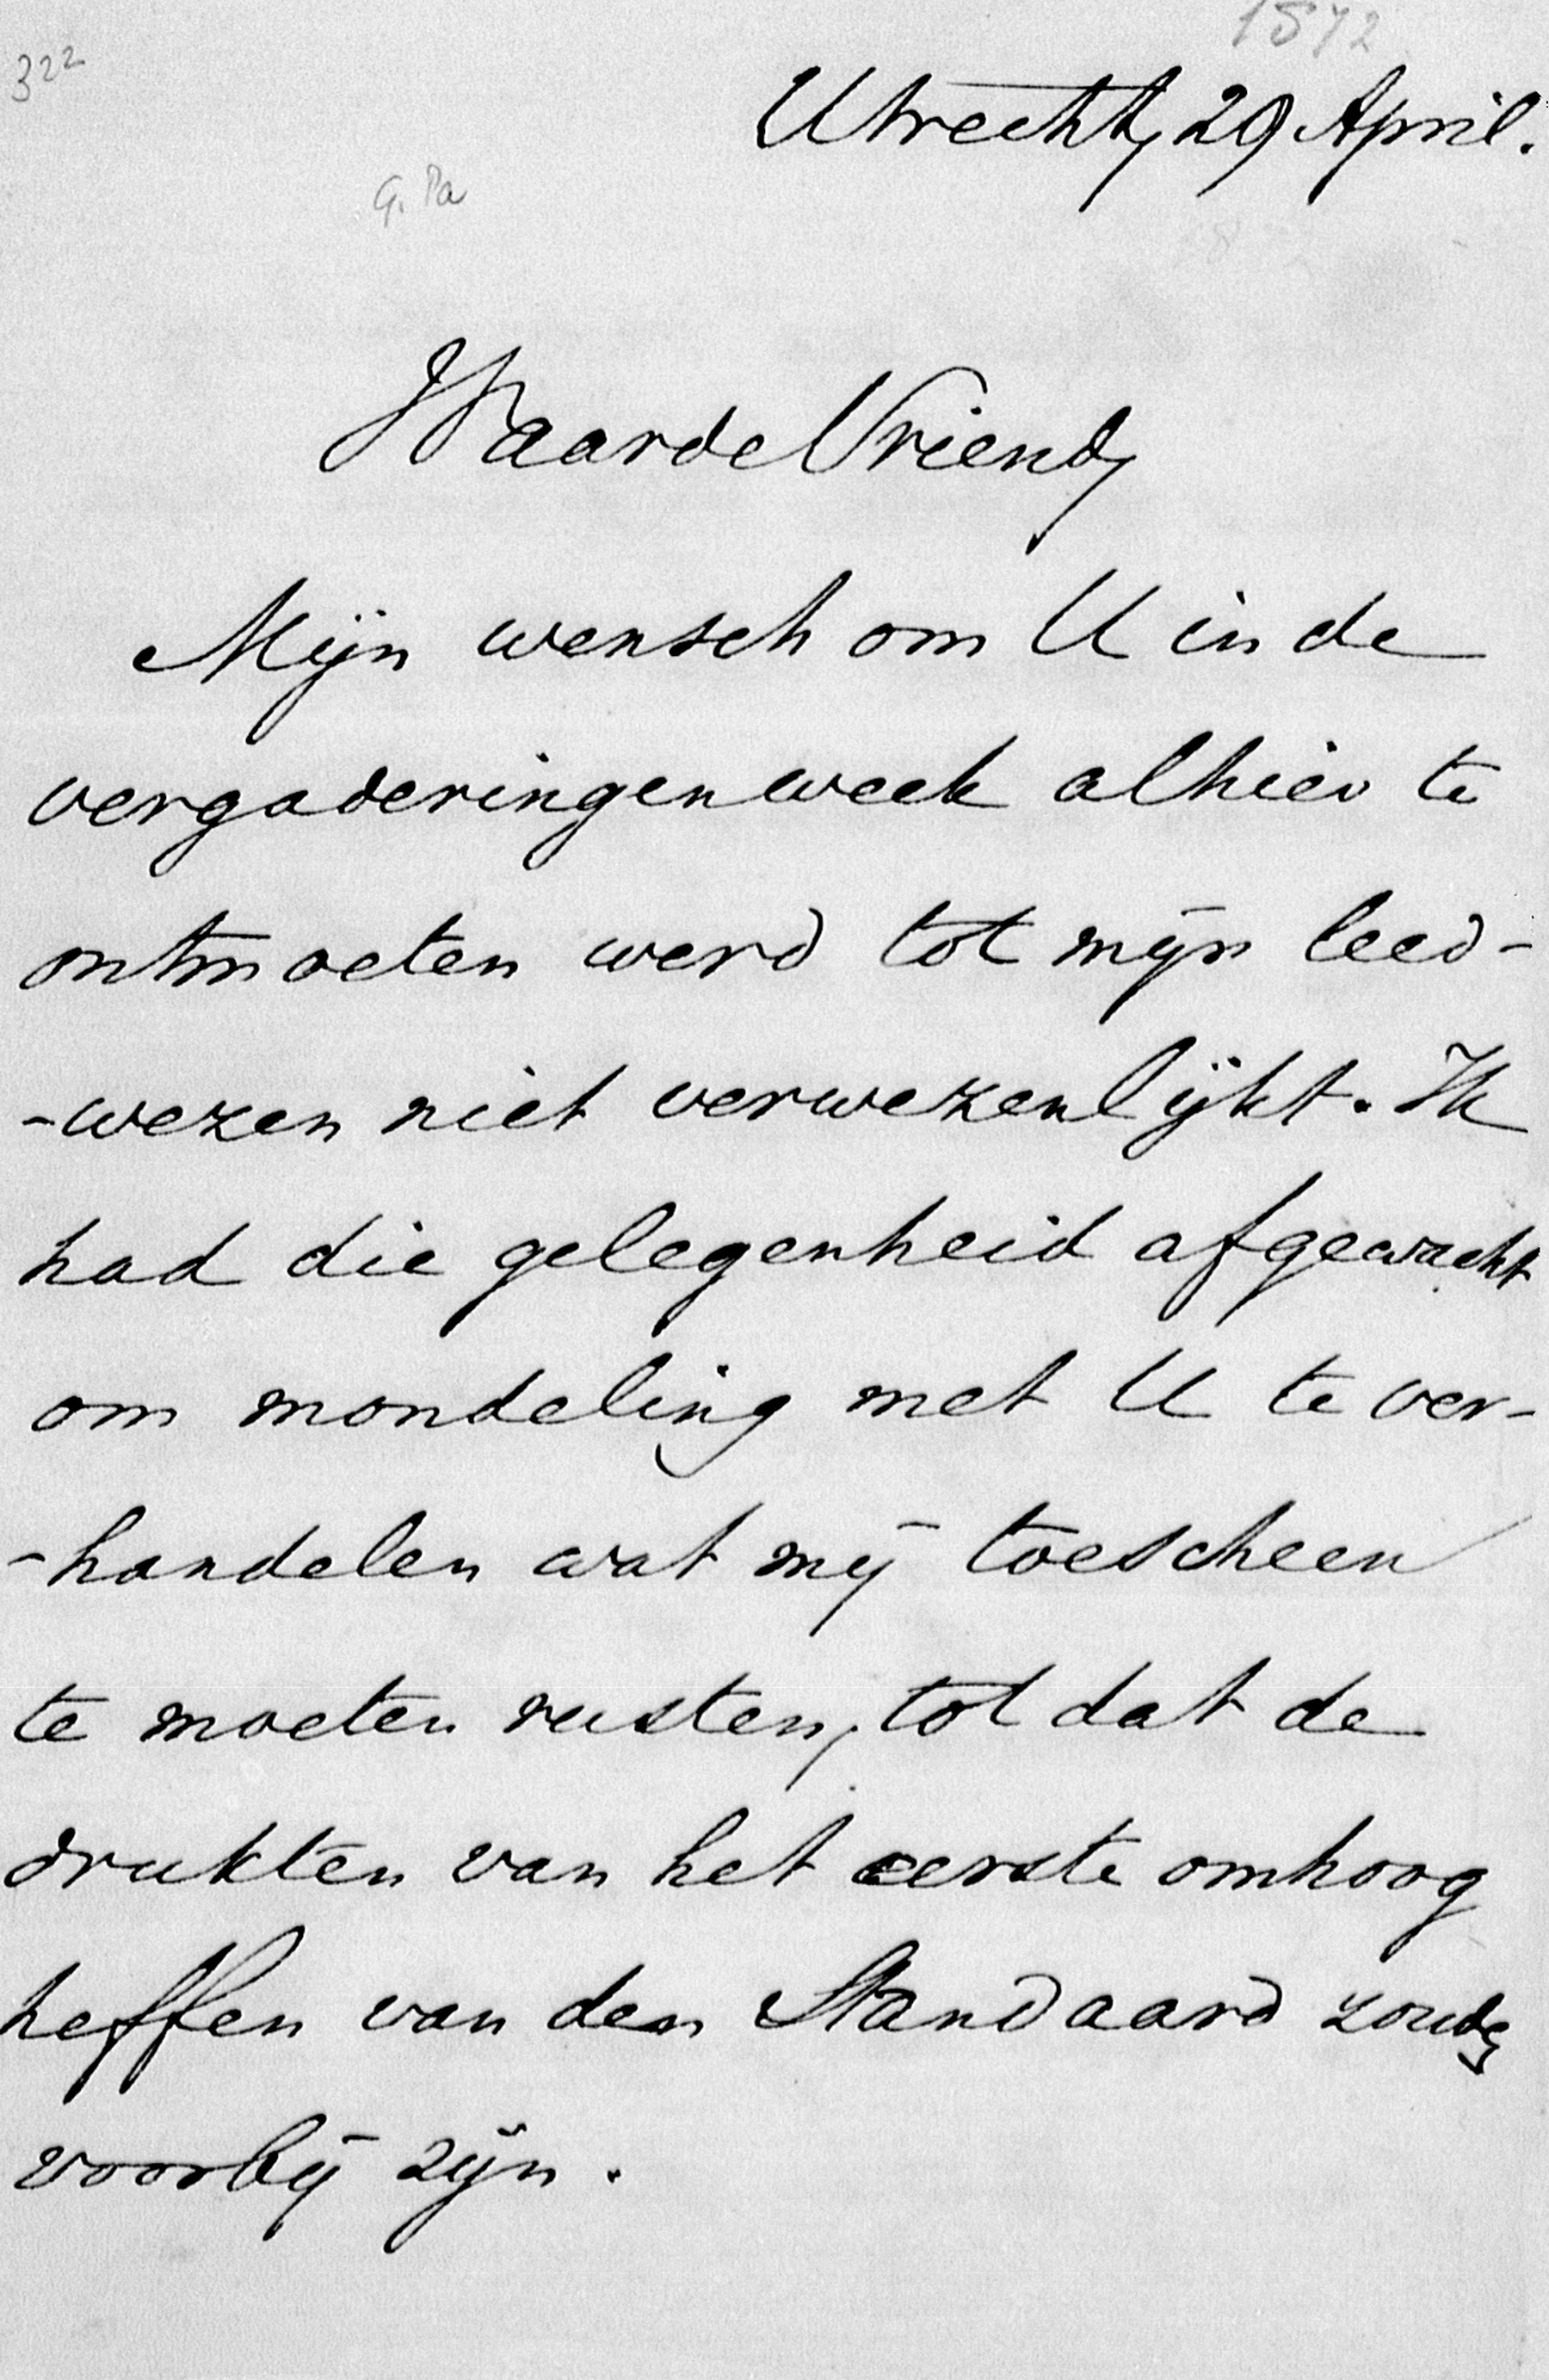 1872
322
Utrecht, 29 April.
G. Pa
Waarde Vriend,
Mijn wensch om U in de
vergaderingenweek alhier te
ontmoeten werd tot mijn leed-
-wezen niet verwezenlijkt. Ik
had die gelegenheid afgewacht
om mondeling met U te ver-
-handelen wat mij toescheen
te moeten rusten, tot dat de
drukten van het eerste omhoog
heffen van den Standaard zoude
voorbij zijn.